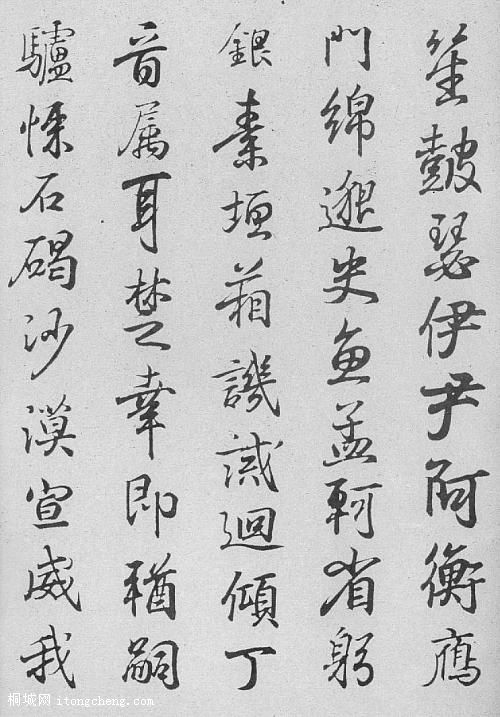 笙皷瑟伊尹阿衡鴈
門綿邈史魚孟軻省躬
銀素垣箱譏誡迴傾丁
音属耳楚幸即猶嗣
驢悚石碣沙漠宣威我
桐城网 itongcheng.com